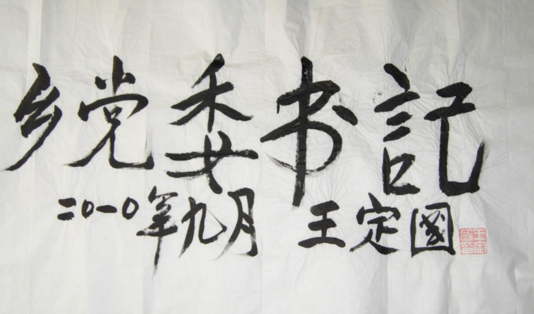 乡党委书記
二〇一〇年九月 王定國